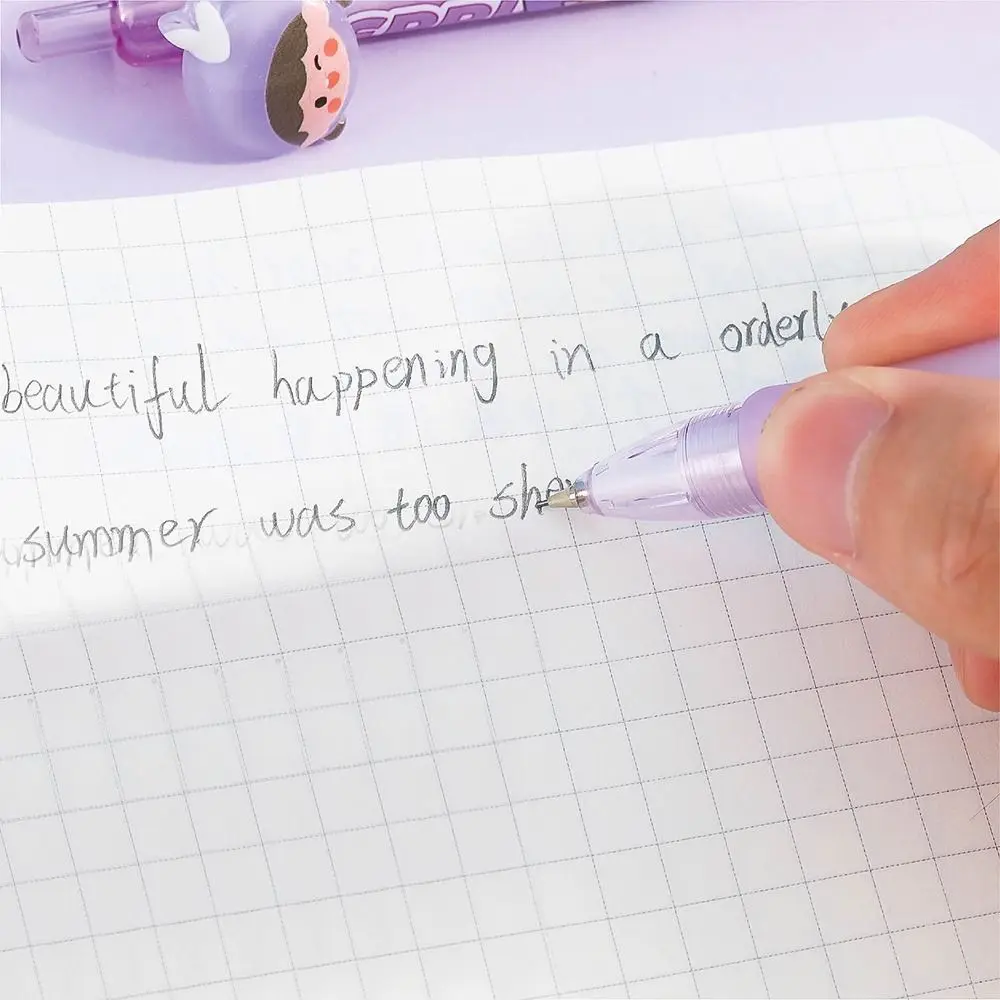 beautiful happening in a orderly
summer was too